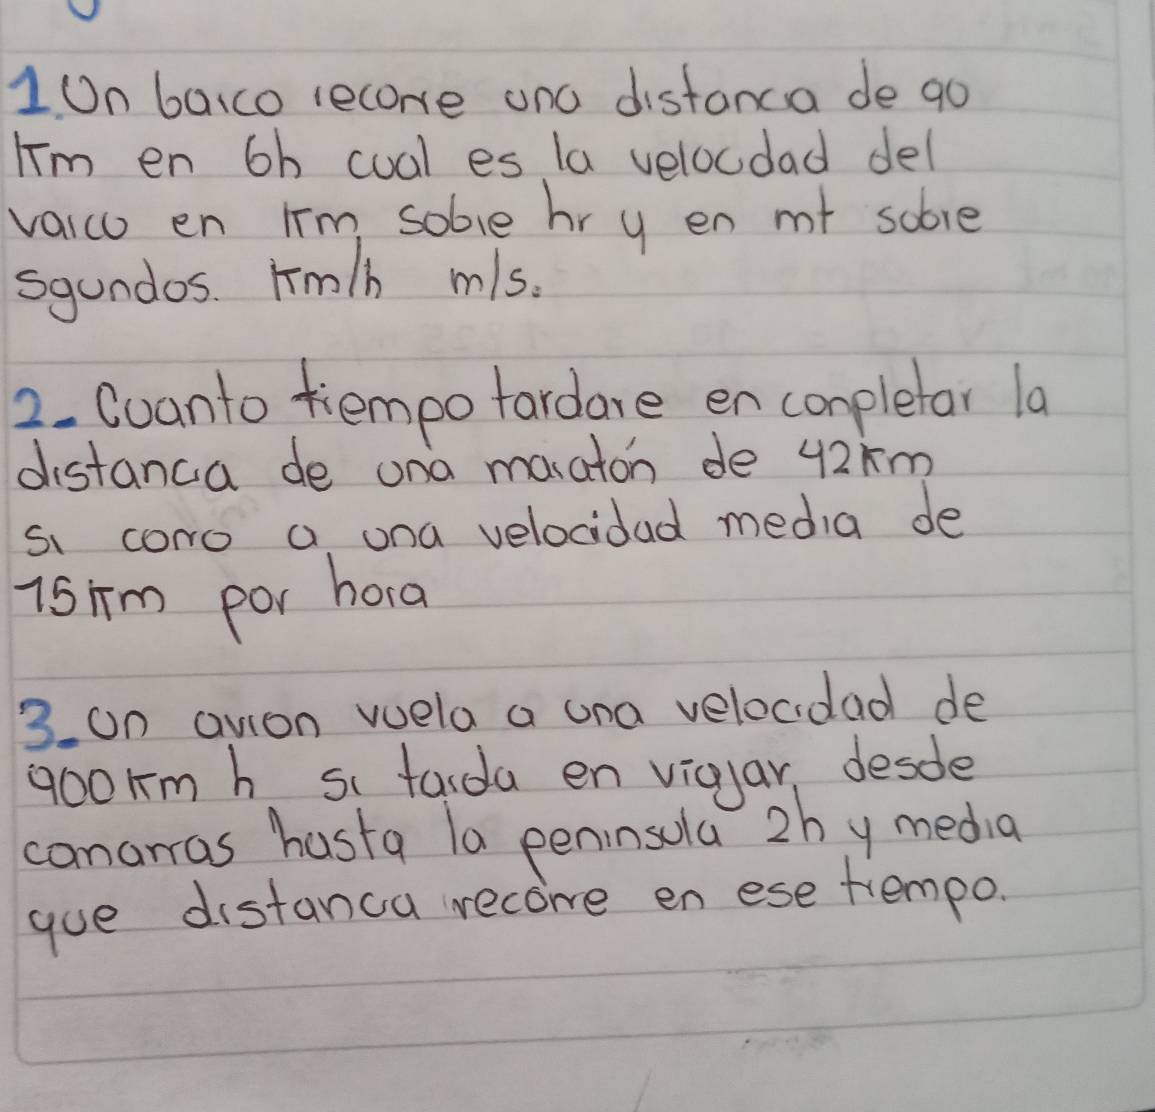 1. Un barco recorre una distanca de 90
Km en 6h cual es la velocdad del
varco en Km sobre hr y en mt sobre
sgundos. Km/h m/s.
2- Cuanto tiempo tardare en conpletar la
distanca de una maratón de 42Km
si corro a una velocidad media de
15Km por hora
3- Un avion vuela a una velocidad de
900Km h si tarda en viajar desde
canarras hasta la peninsula 2h y media
que distanca recorre en ese tiempo.